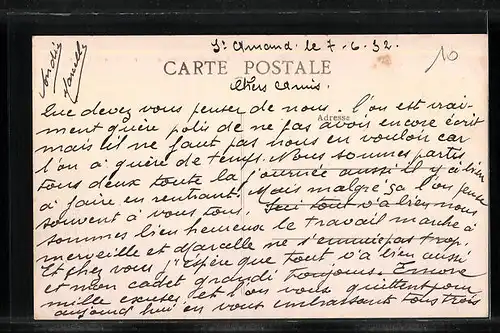 St Amand. le 7-6-32.
10
CARTE POSTALE
Chers Amis.
Adresse
Que devez vous penser de nous. l'on est vrai-
ment guère polis de ne pas avoir encore écrit
mais il ne faut pas nous en vouloir car
l'on a guère de temps. Nous sommes partis
tous deux toute la journée aussi il y a bien
à faire en rentrant. Mais malgré ça l'on pense
souvent à vous tous. Ici tout va bien nous
sommes bien heureux le travail marche à
merveille et Marcelle ne s'ennuie pas trop.
Et chez vous j'espère que tout va bien aussi
et mon cadet grandi toujours. Encore
mille excuses et l'on vous quittent pour
aujourd'hui en vous embrassant tous trois